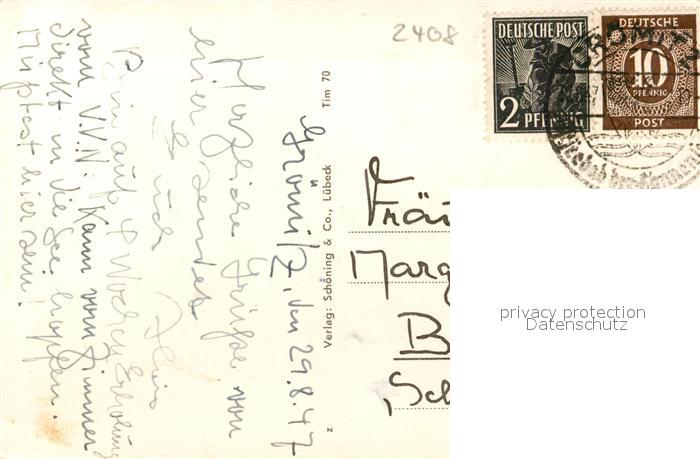 2408
DEUTSCHE POST
2 PFENNIG
DEUTSCHE
10
PFENNIG
POST
Grömitz, den 29.8.47
Herzliche Grüße von
hier sendet
Euch
Bin auf 4 Wochen Erholung
vom V.V.N. Kann vom Zimmer
direkt in die See hopsen.
Müßtest hier sein!
Tim 70
Verlag: Schöning & Co., Lübeck
z
Fräu
Marg
B
Sch
privacy protection
Datenschutz